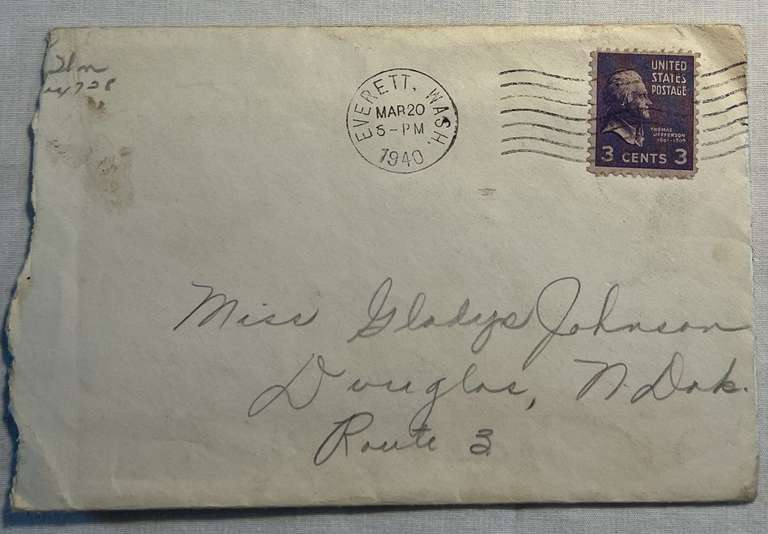 EVERETT, WASH.
MAR 20
5-PM
1940
UNITED
STATES
POSTAGE
THOMAS
JEFFERSON
1801-1809
3 CENTS 3
Miss Gladys Johnson
Douglas, N Dak.
Route 3